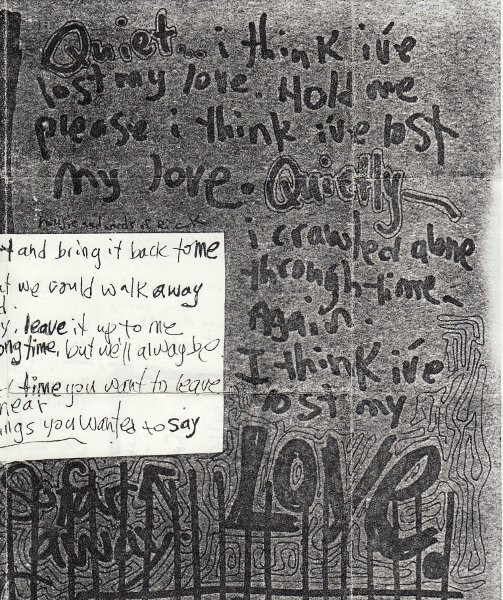 Quiet... i think i've
lost my love. Hold me
please i think i've lost
my love. Quietly
i crawled alone
through time
Again.
I think i've
lost my
LOVE.
and bring it back to me
we could walk away
leave it up to me
time, but we'll always be
time you want to leave
near
you wanted to say
So far
away